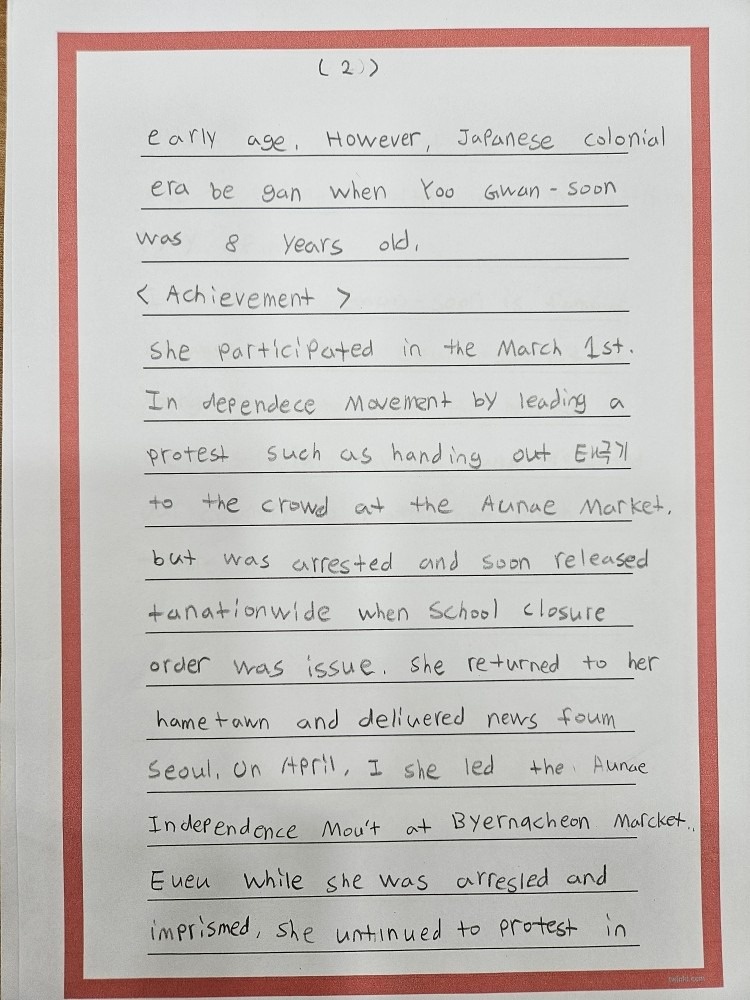 (2)
early age. However, Japanese colonial
era be gan when Yoo Gwan-soon
was 8 years old.
< Achievement >
She participated in the March 1st.
In dependece Movement by leading a
protest such as handing out 태극기
to the crowd at the Aunae Market.
but was arrested and soon released
tanationwide when School closure
order was issue. She returned to her
hametawn and delivered news foum
Seoul. On April, I she led the Aunae
Independence Mou't at Byernacheon Marcket.
Eueu while she was arresled and
imprismed, she untinued to protest in